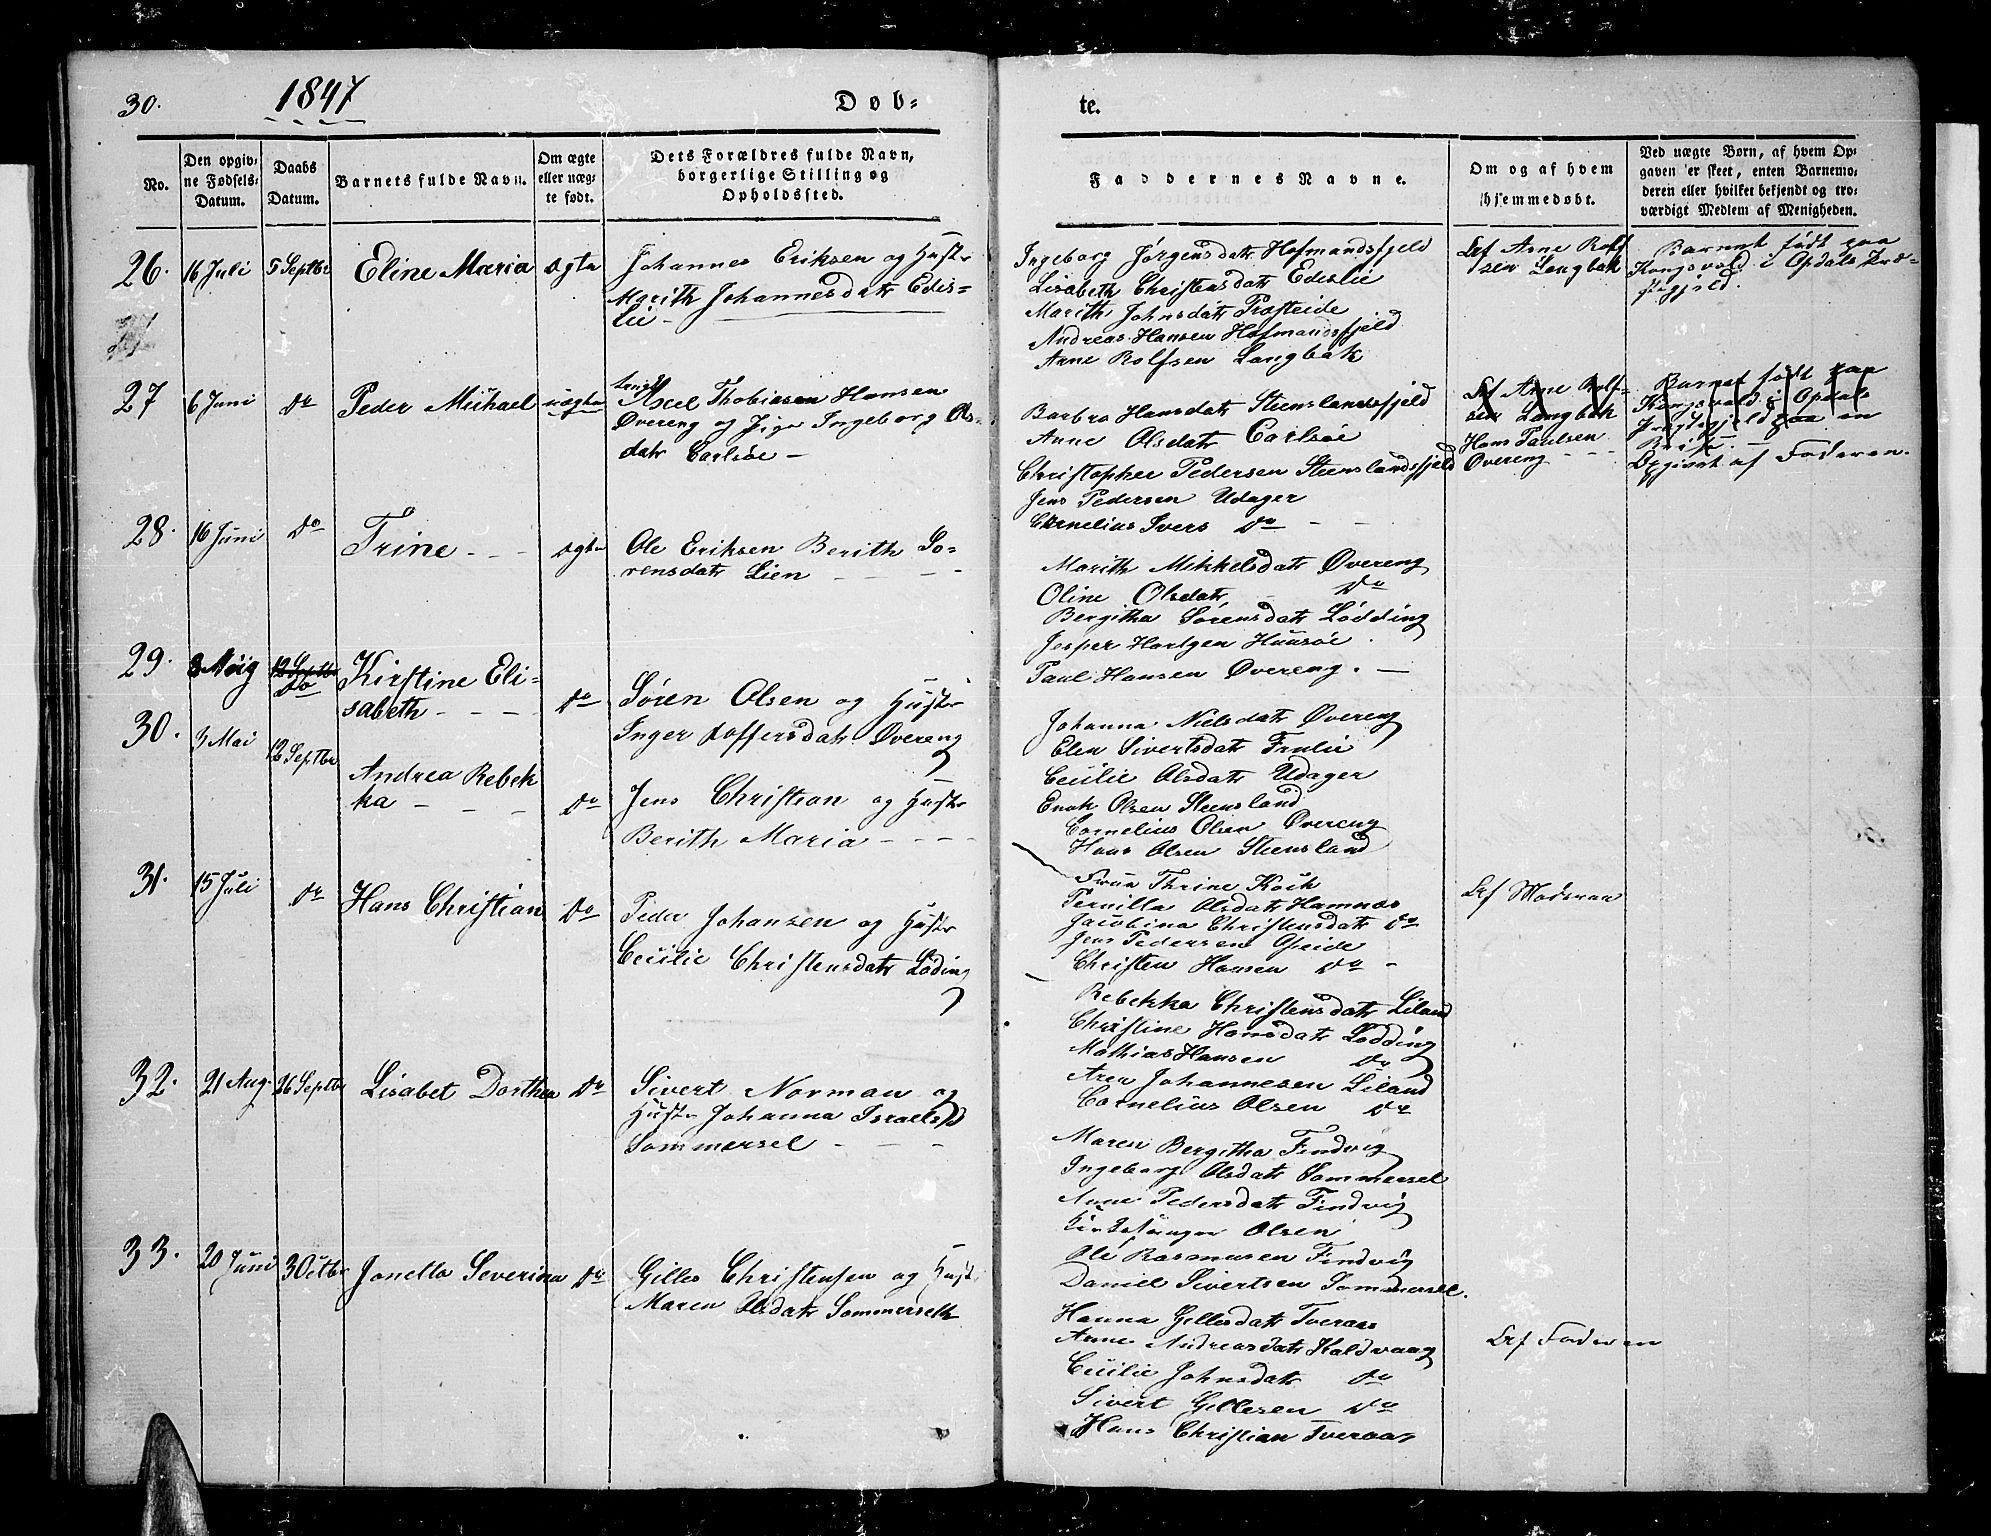 30.
1847
Døb-
te.
No.
Den opgiv-
ne Fødsels-
Datum.
Daabs
Datum.
Barnets fulde Navn.
Om ægte
eller uæg-
te født.
Dets Forældres fulde Navn,
borgerlige Stilling og
Opholdssted.
Faddernes Navne.
Om og af hvem
hjemmedøbt.
Ved uægte Børn, af hvem Op-
gaven er skeet, enten Barnemo-
deren eller hvilket bekjendt og tro-
værdigt Medlem af Menigheden.
26. 16 Juli 5 Septbr Eline Maria ægte
Johannes Eriksen og Hustr
Marith Johannesdatr Edis-
lie
Ingeborg Jørgensdatr Hofmandsfjeld
Lisabeth Christensdatr Edislie
Marith Johnsdatr Præsteide
Andreas Hansen Hofmandsfjeld
Arne Rolfsen Langbak
Af Arne Rolf
sen Langbak
Barnet født paa
Kongsvold i Opdals Præ-
stegjeld.
27 6 Juni do Peder Michael uægte
Axel Thobiasen Hansen
Øvereng og Pige Ingeborg Ols-
datr Carlsøe
Barbra Hansdatr Steenslandsfjeld
Anne Olsdatr Carlsøe
Christopher Pedersen Steenslandsfjeld
Jens Pedersen Udager
Cornelius Ivers do
Af Arne Rolf-
sen Langbak
Hans Paulsen
Øvereng
Barnet født paa
Kongsvold i Opdals
Præstegjeld paa en
Opgivet af Faderen.
28. 16 Juni do Trine ægte
Ole Eriksen Berith So-
rensdatr Lien
Marith Mikkelsdatr Øvereng
Oline Olsdatr do
Bergitha Sørensdatr Lødding
Jesper Hartgen Huusøe
Paul Hansen Øvereng.
29. 12 Septbr
do
Kirstine Eli-
sabeth do
Søren Olsen og Hustr
Inger Toffersdatr Øvereng
Johanna Nielsdatr Øvereng
Elen Sivertsdatr Finlie
Cecilie Olsdatr Udager
Enok Olsen Steensland
Cornelius Olsen Øvereng
Hans Olsen Steensland
30. 3 Mai 12 Septbr
Andrea Rebek
ka do
Jens Christian og Hustr
Berith Maria
Frua Thrine Koch
Pernilla Olsdatr Hamnæs
Jacobina Christensdatr do
Jens Pedersen Øseide
Christen Hansen do
31. 15 Juli do Hans Christian do
Peder Johansen og Hustr
Cecilie Christensdatr Løding
Rebekka Christensdatr Liland
Christine Hansdatr Lødding
Mathias Hansen do
Aren Johannesen Liland
Cornelius Olsen do
Af Moderen
32. 21 Aug. 26 Septbr Lisabet Dorthea do
Sivert Norman og
Hustr Johanna Israelsd
Sommersel
Maren Bergitha Findvig
Ingeborg Olsdatr Sommersel
Anne Pedersdatr Findvig
Kirkesanger Olsen
Ole Rasmusen Findvig
Daniel Sivertsen Sommersel.
33. 20 Juni 3 Octbr Jonetta Severina do
Gilles Christensen og Hustr
Maren Olsdatr Sommerseth
Hanna Gillesdatr Tveraas
Anne Andreasdatr Kaldvaag
Cecilie Johnsdatr do
Sivert Gillesen do
Hans Christian Tveraas
Af Faderen